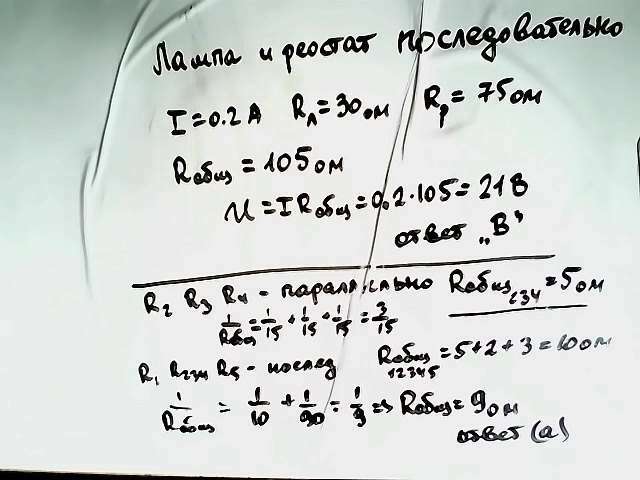 Лампа и реостат последовательно
I=0.2A Rл=30ом Rр=75ом
Rобщ=105ом
U=IRобщ=0.2·105=21В
ответ „В"
R2 R3 R4 - параллельно Rобщ234=5ом
1/Rобщ=1/15+1/15+1/15=3/15
R1 R234 R5 - послед Rобщ12345=5+2+3=10ом
1/Rобщ = 1/10 + 1/90 = 1/9 => Rобщ=9ом
ответ (а)